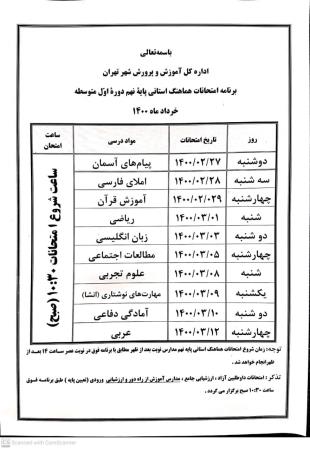 باسمه‌تعالی
اداره کل آموزش و پرورش شهر تهران
برنامه امتحانات هماهنگ استانی پایه نهم دوره اول متوسطه
خرداد ماه ۱۴۰۰
روز تاریخ امتحانات مواد درسی ساعت امتحان
دوشنبه ۱۴۰۰/۰۲/۲۷ پیام‌های آسمان
سه شنبه ۱۴۰۰/۰۲/۲۸ املای فارسی
چهارشنبه ۱۴۰۰/۰۲/۰۲۹ آموزش قرآن
شنبه ۱۴۰۰/۰۳/۰۱ ریاضی
دو شنبه ۱۴۰۰/۰۳/۰۳ زبان انگلیسی
چهارشنبه ۱۴۰۰/۰۳/۰۵ مطالعات اجتماعی
شنبه ۱۴۰۰/۰۳/۰۸ علوم تجربی
یکشنبه ۱۴۰۰/۰۳/۰۹ مهارت‌های نوشتاری (انشا)
دو شنبه ۱۴۰۰/۰۳/۱۰ آمادگی دفاعی
چهارشنبه ۱۴۰۰/۰۳/۱۲ عربی
ساعت شروع امتحانات ۱۰:۳۰ (صبح)
توجه: زمان شروع امتحانات هماهنگ استانی پایه نهم مدارس نوبت بعد از ظهر مطابق با برنامه فوق در نوبت عصر ساعت ۱۴ بعد از
ظهر انجام خواهد شد.
تذکر: امتحانات داوطلبین آزاد، ارزشیابی جامع، مدارس آموزش از راه دور و ارزشیابی ورودی (تعیین پایه) طبق برنامه فوق
ساعت ۱۰:۳۰ صبح برگزار می گردد.
CS Scanned with CamScanner